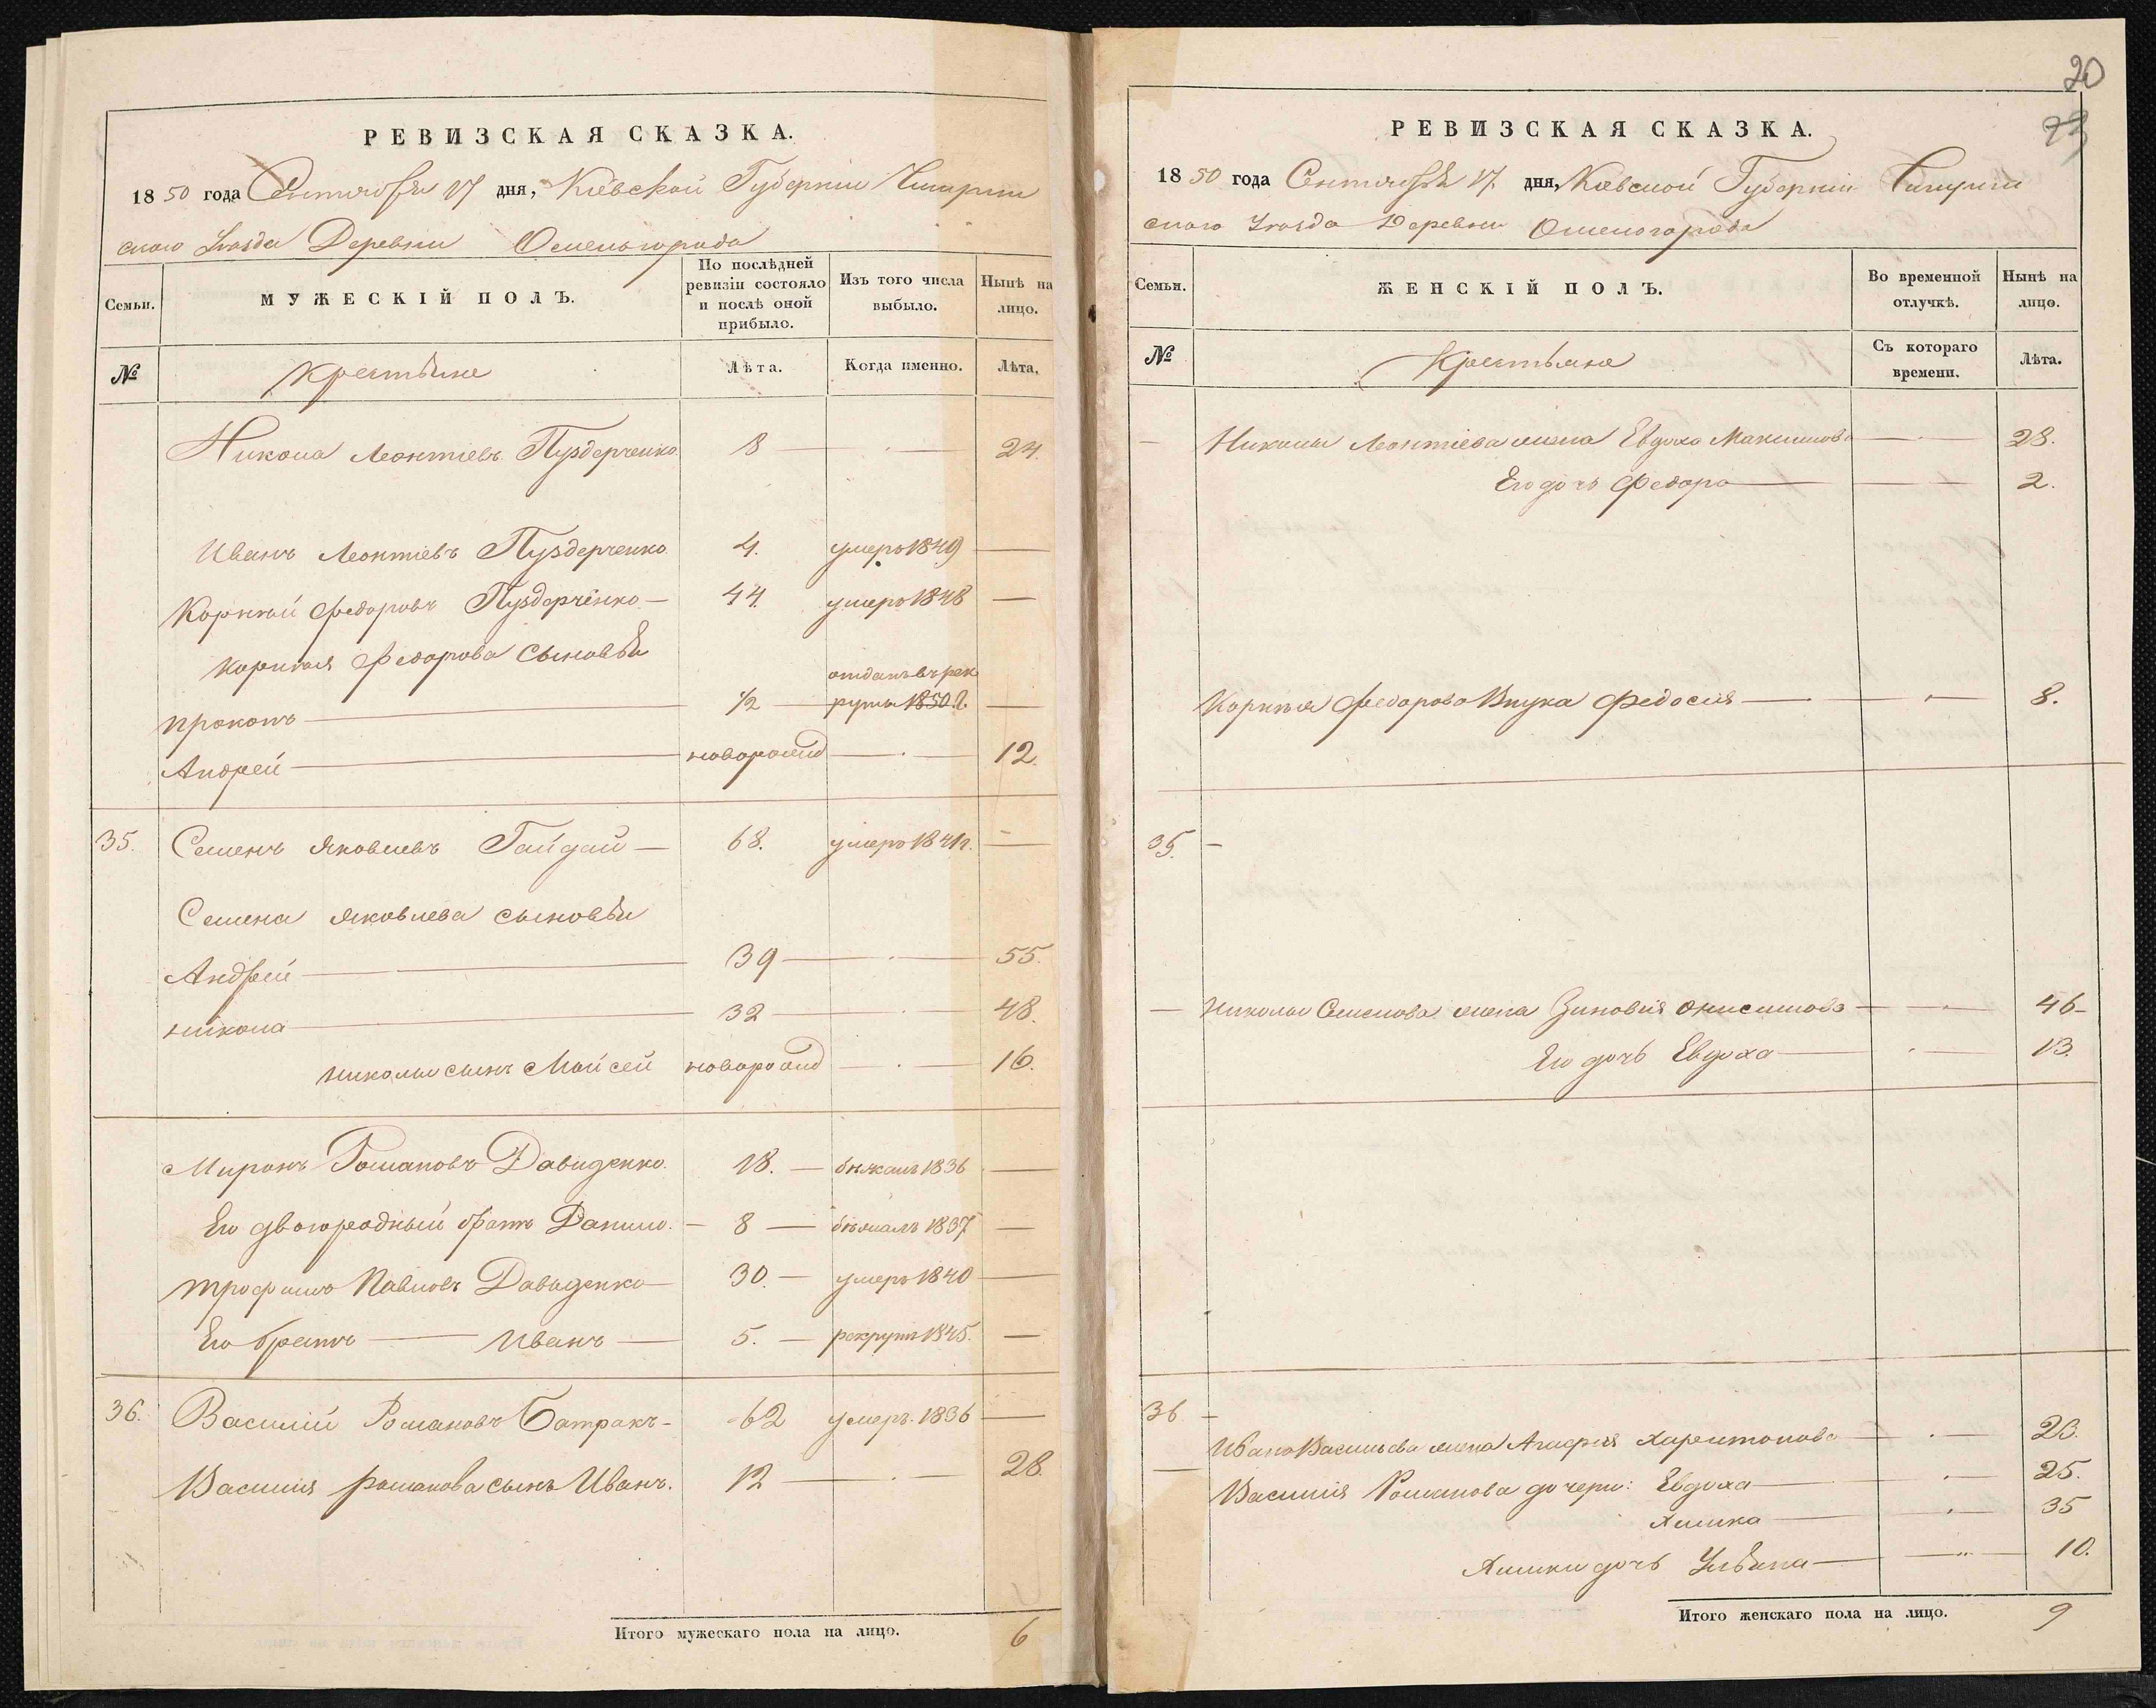 РЕВИЗСКАЯ СКАЗКА.
1850 года Сентября 17 дня, Кіевской Губерніи Чигрин
скаго Уѣзда Деревни
Семьи.
МУЖЕСКІЙ ПОЛЪ.
По послѣдней ревизіи состояло и послѣ оной прибыло.
Изъ того числа выбыло.
Нынѣ на лицо.
№
Крестьяне
Лѣта.
Когда именно.
Лѣта.
Никола Леонтіевъ Пуздерченко 8 — 24.
Иванъ Леонтіевъ Пуздерченко 4. умеръ 1849 —
Корнѣй Федоровъ Пуздерченко — 44. умеръ 1848 —
Корнѣя Федорова сыновья
Прокопъ — 12 — отданъ въ рек
руты 1850 г. —
Андрей — новорожд — 12.
35. Семенъ Яковлевъ Гайдай — 68. умеръ 1841 г. —
Семена Яковлева сыновья
Андрей — 39 — 55.
Никола — 32 — 48.
Николы сынъ Мойсей новорожд — 16.
Миронъ Романовъ Давиденко. 18. — бѣжалъ 1836 —
Его двоюродный братъ Данило. — 8 — бѣжалъ 1837 —
Трофимъ Павловъ Давиденко — 30. — умеръ 1840 —
Его братъ — Иванъ — 5. — рекрутъ 1845. —
36. Василій Романовъ Батракъ — 62 умеръ 1836 —
Василія Романова сынъ Иванъ. 12 — 28.
Итого мужескаго пола на лицо. 6
20
23
РЕВИЗСКАЯ СКАЗКА.
1850 года Сентября 17. дня, Кіевской Губерніи Чигрин
скаго Уѣзда Деревни
Семьи.
ЖЕНСКІЙ ПОЛЪ.
Во временной отлучкѣ.
Нынѣ на лицо.
№
Крестьяне
Съ котораго времени.
Лѣта.
— Николы Леонтіева жена Евдоха Максимова — 28.
Его дочь Федора — 2.
Корнѣя Федорова Внука Федосія — 8.
35. —
— Николы Семенова жена Зиновія Онисимова — 46 —
Его дочь Евдоха — 13.
36 —
Ивана Васильева жена Агафія Харитонова — 23.
— Василія Романова дочери: Евдоха — 25.
Химка — 35
Химки дочь Ульяна — 10.
Итого женскаго пола на лицо. 9